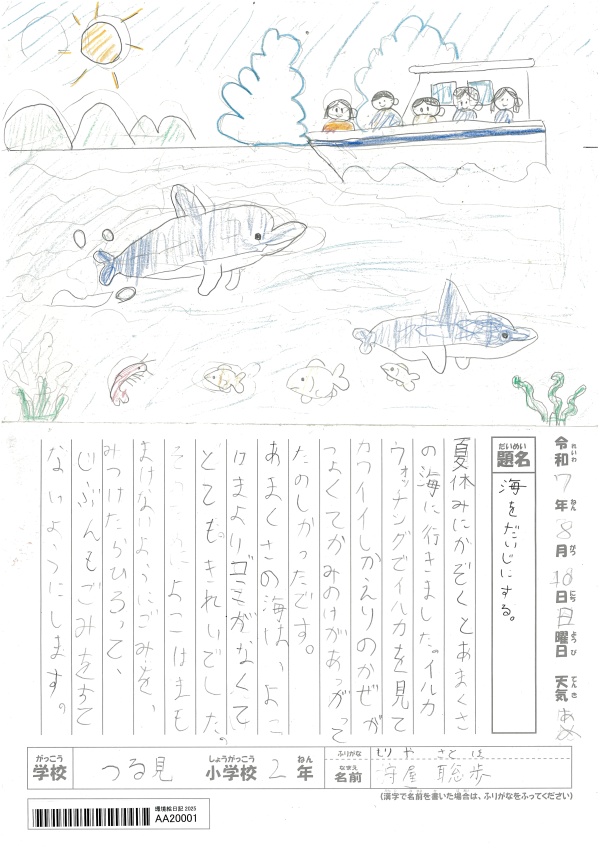 令和7年8月10日日曜日 天気 あめ
れいわ ねん がつ にち ようび てんき
だいめい
題名 海をだいじにする。
夏休みにかぞくとあまくさ
の海に行きました。イルカ
ウォッチングでイルカを見て
カワイイしかえりのかぜが
つよくてかみのけがあがって
たのしかったです。
あまくさの海は、よこ
はまよりゴミがなくて
とても。きれいでした。
よこはまも
まけないようにごみを、
みつけたらひろって、
じぶんもごみをすて
ないようにします。
がっこう しょうがっこう ねん
学校 つる見 小学校 2年
ふりがな もりや さとほ
なまえ
名前 守屋 聡歩
(漢字で名前を書いた場合は、ふりがなをふってください)
環境絵日記 2025
AA20001